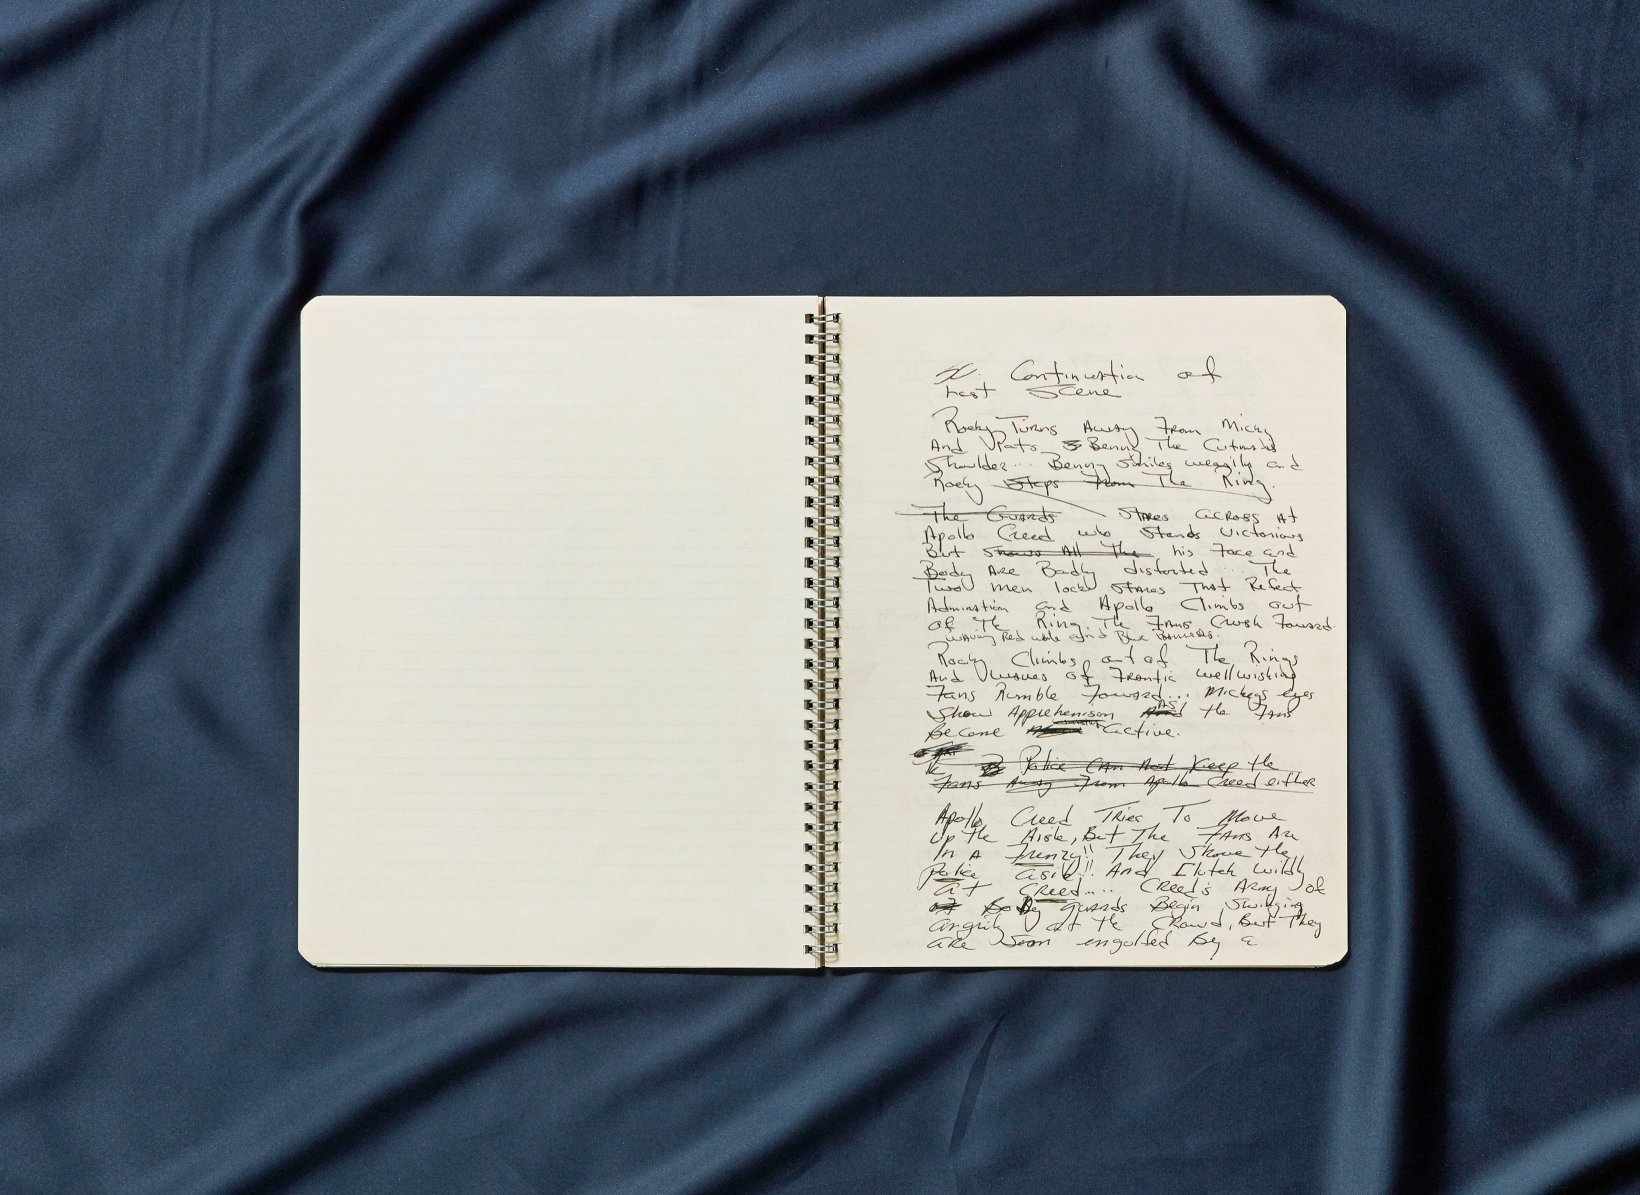 Continuation of
Last Scene
Rocky Turns Away From Micky
And Pats Benny The Cutmans
Shoulder... Benny Smiles wearily and
Rocky Steps From The Ring.
The Guards Stares across At
Apollo Creed who Stands Victorious
But Shows All The his Face and
Body Are Badly distorted... The
Two men lock Stares That Reflect
Admiration and Apollo Climbs out
of The Ring. The Fans Crush Forward.
waving Red white and Blue Banners.
Rocky Climbs out of The Rings
And Waves of Frantic wellwishing
Fans Rumble Forward... Mickeys eyes
Show Apprehenison As the Fans
Become active.
the Police Can Not Keep the
Fans Away From Apollo Creed either
Apollo Creed Tries To Move
Up the Aisle, But The Fans Are
In A Frenzy!! They Shove the
Police aside!! And Clutch wildly
at Creed.... Creed's Army of
of Body guards Begin Swinging
angrily at the Crowd, But They
are Soon engolfed By a